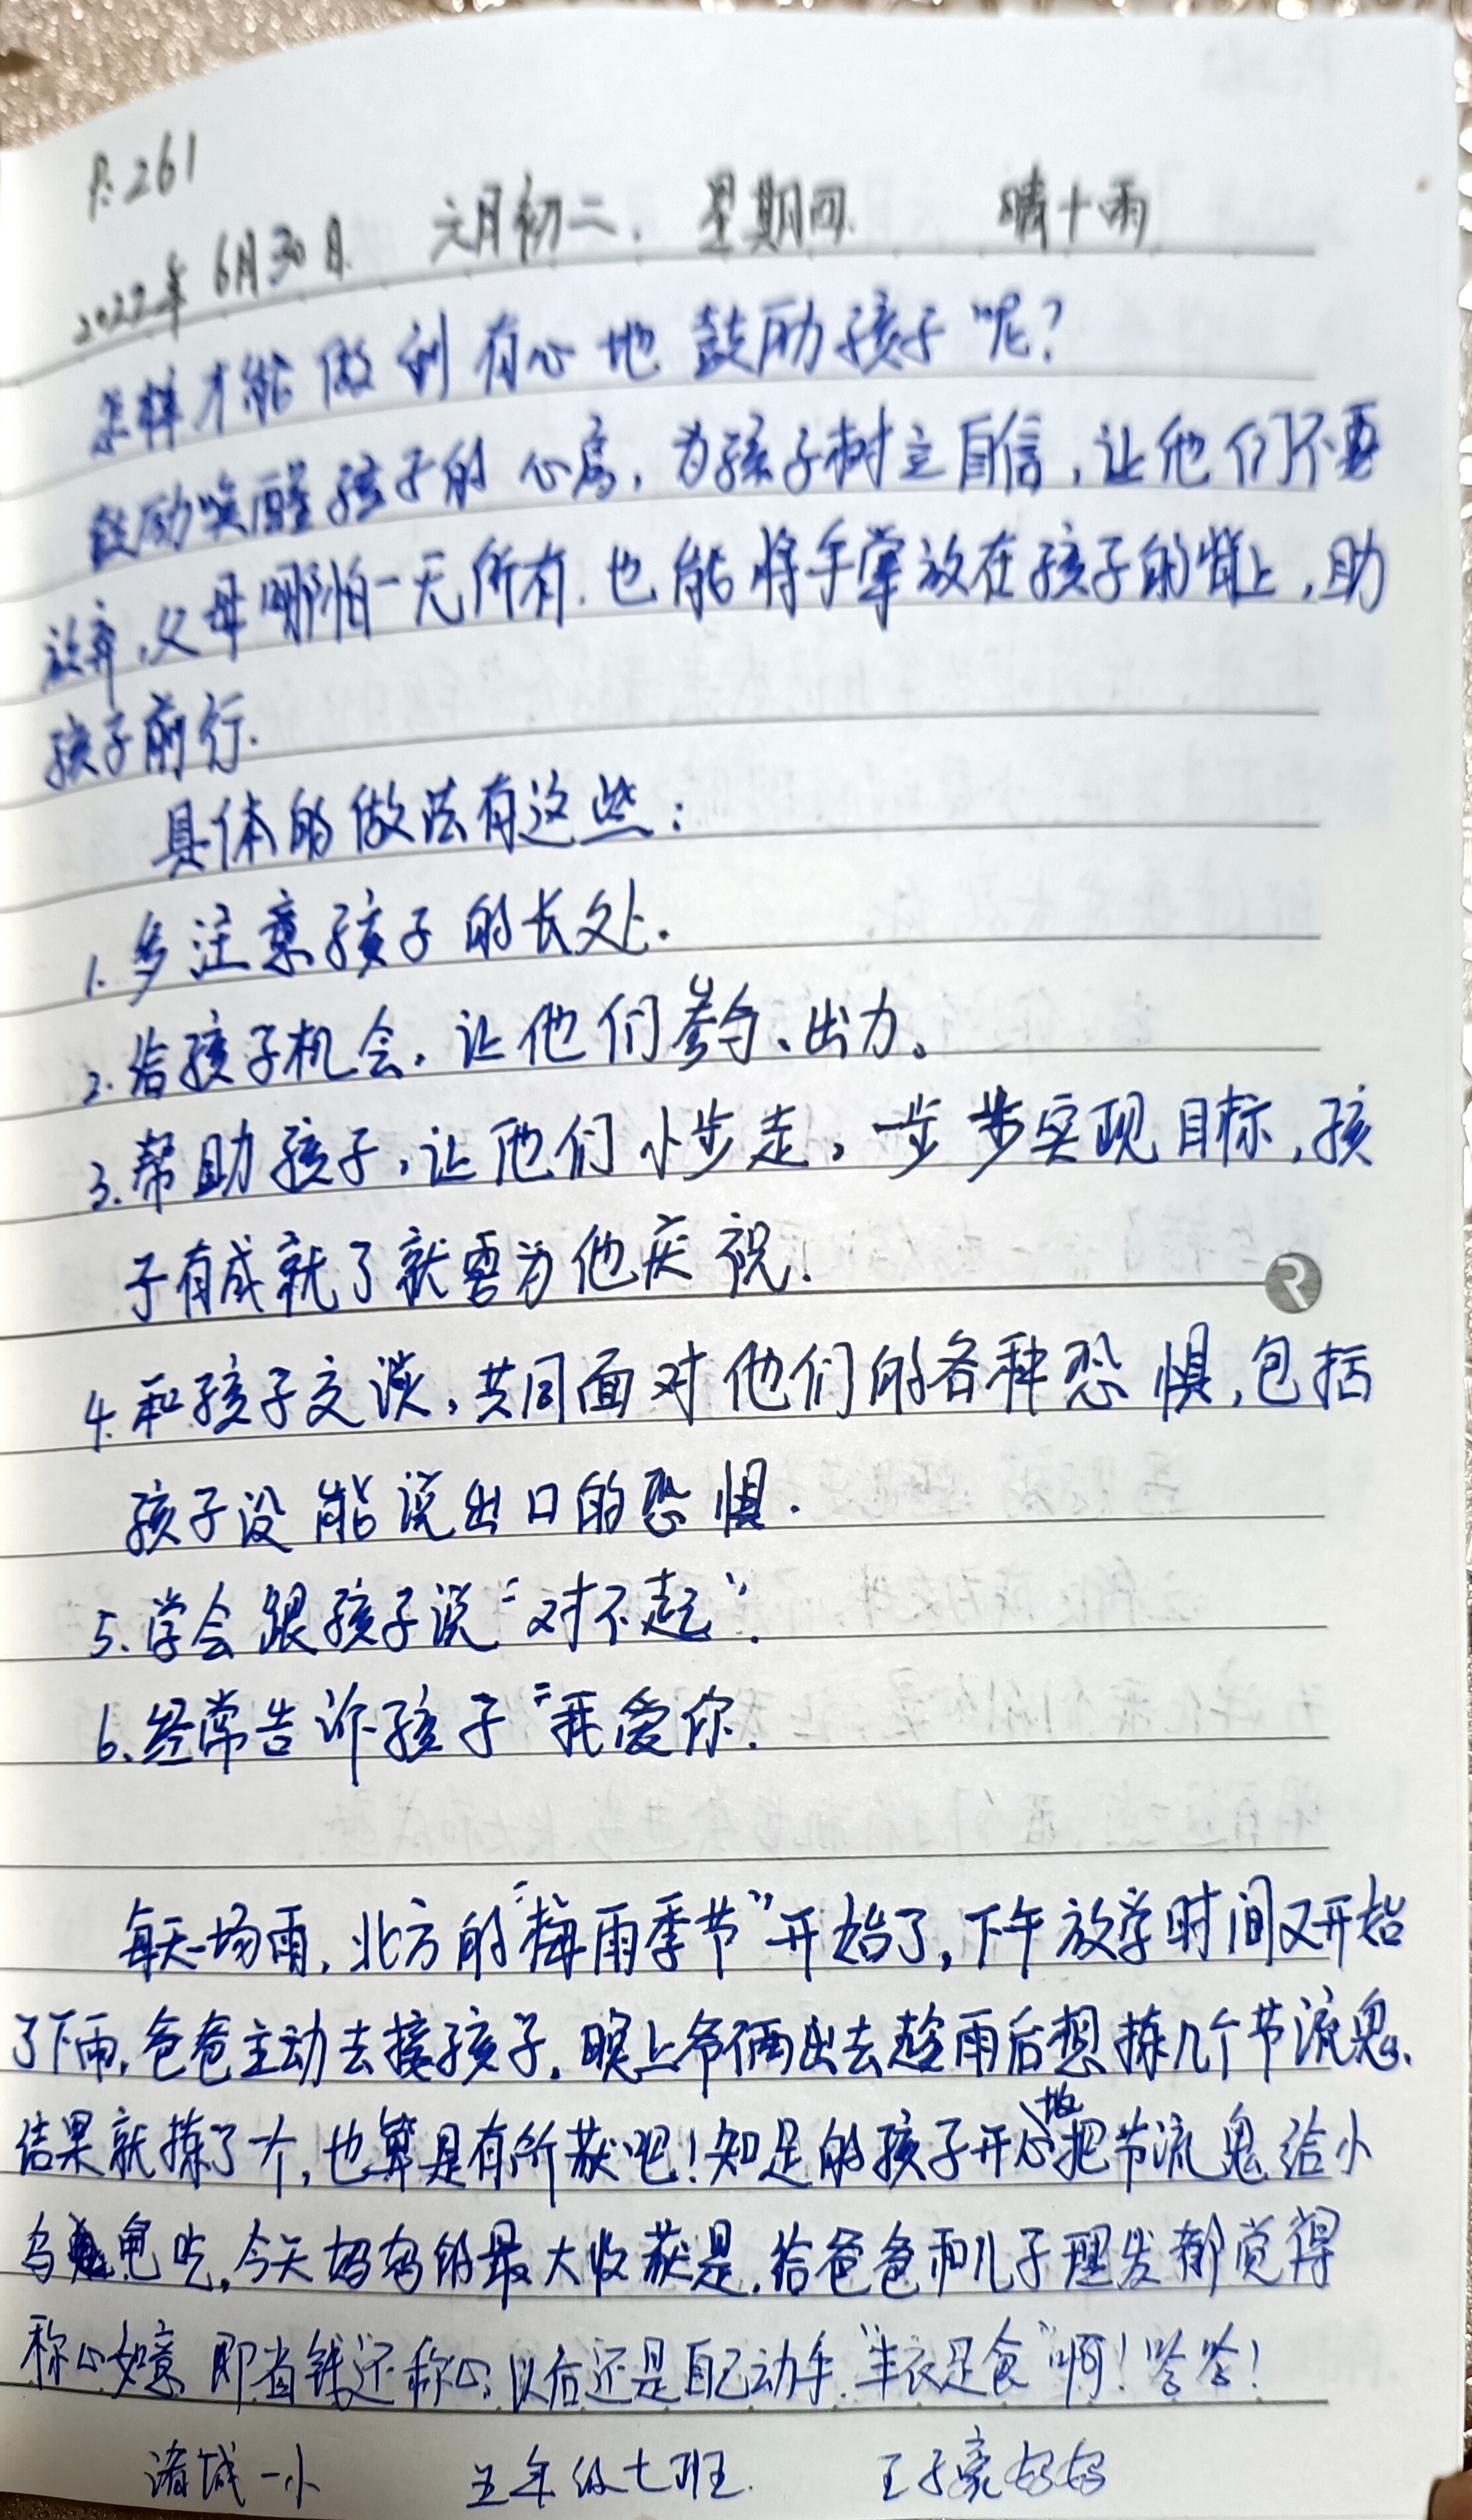 P.261
2022年6月30日. 六月初二. 星期四. 晴十雨
怎样才能做到有心地鼓励孩子呢?
鼓励唤醒孩子的心房,为孩子树立自信,让他们不要
放弃,父母哪怕一无所有.也能将手掌放在孩子的背上,助
孩子前行.
具体的做法有这些:
1.多注意孩子的长处.
2.给孩子机会,让他们参与、出力。
3.帮助孩子,让他们小步走,一步步实现目标,孩
子有成就了就要为他庆祝.
4.和孩子交谈,共同面对他们的各种恐惧,包括
孩子没能说出口的恐惧.
5.学会跟孩子说“对不起”.
6.经常告诉孩子“我爱你.
每天一场雨,北方的“梅雨季节”开始了,下午放学时间又开始
了下雨,爸爸主动去接孩子.晚上爷俩出去趁雨后想拣几个节流鬼、
结果就拣了一个,也算是有所获吧!知足的孩子开心地把节流鬼给小
乌龟吃,今天妈妈的最大收获是,给爸爸和儿子理发都觉得
称心如意 即省钱还称心,以后还是自己动手“丰衣足食”啊!哈哈!
诸城一小 五年级七班. 王子豪妈妈